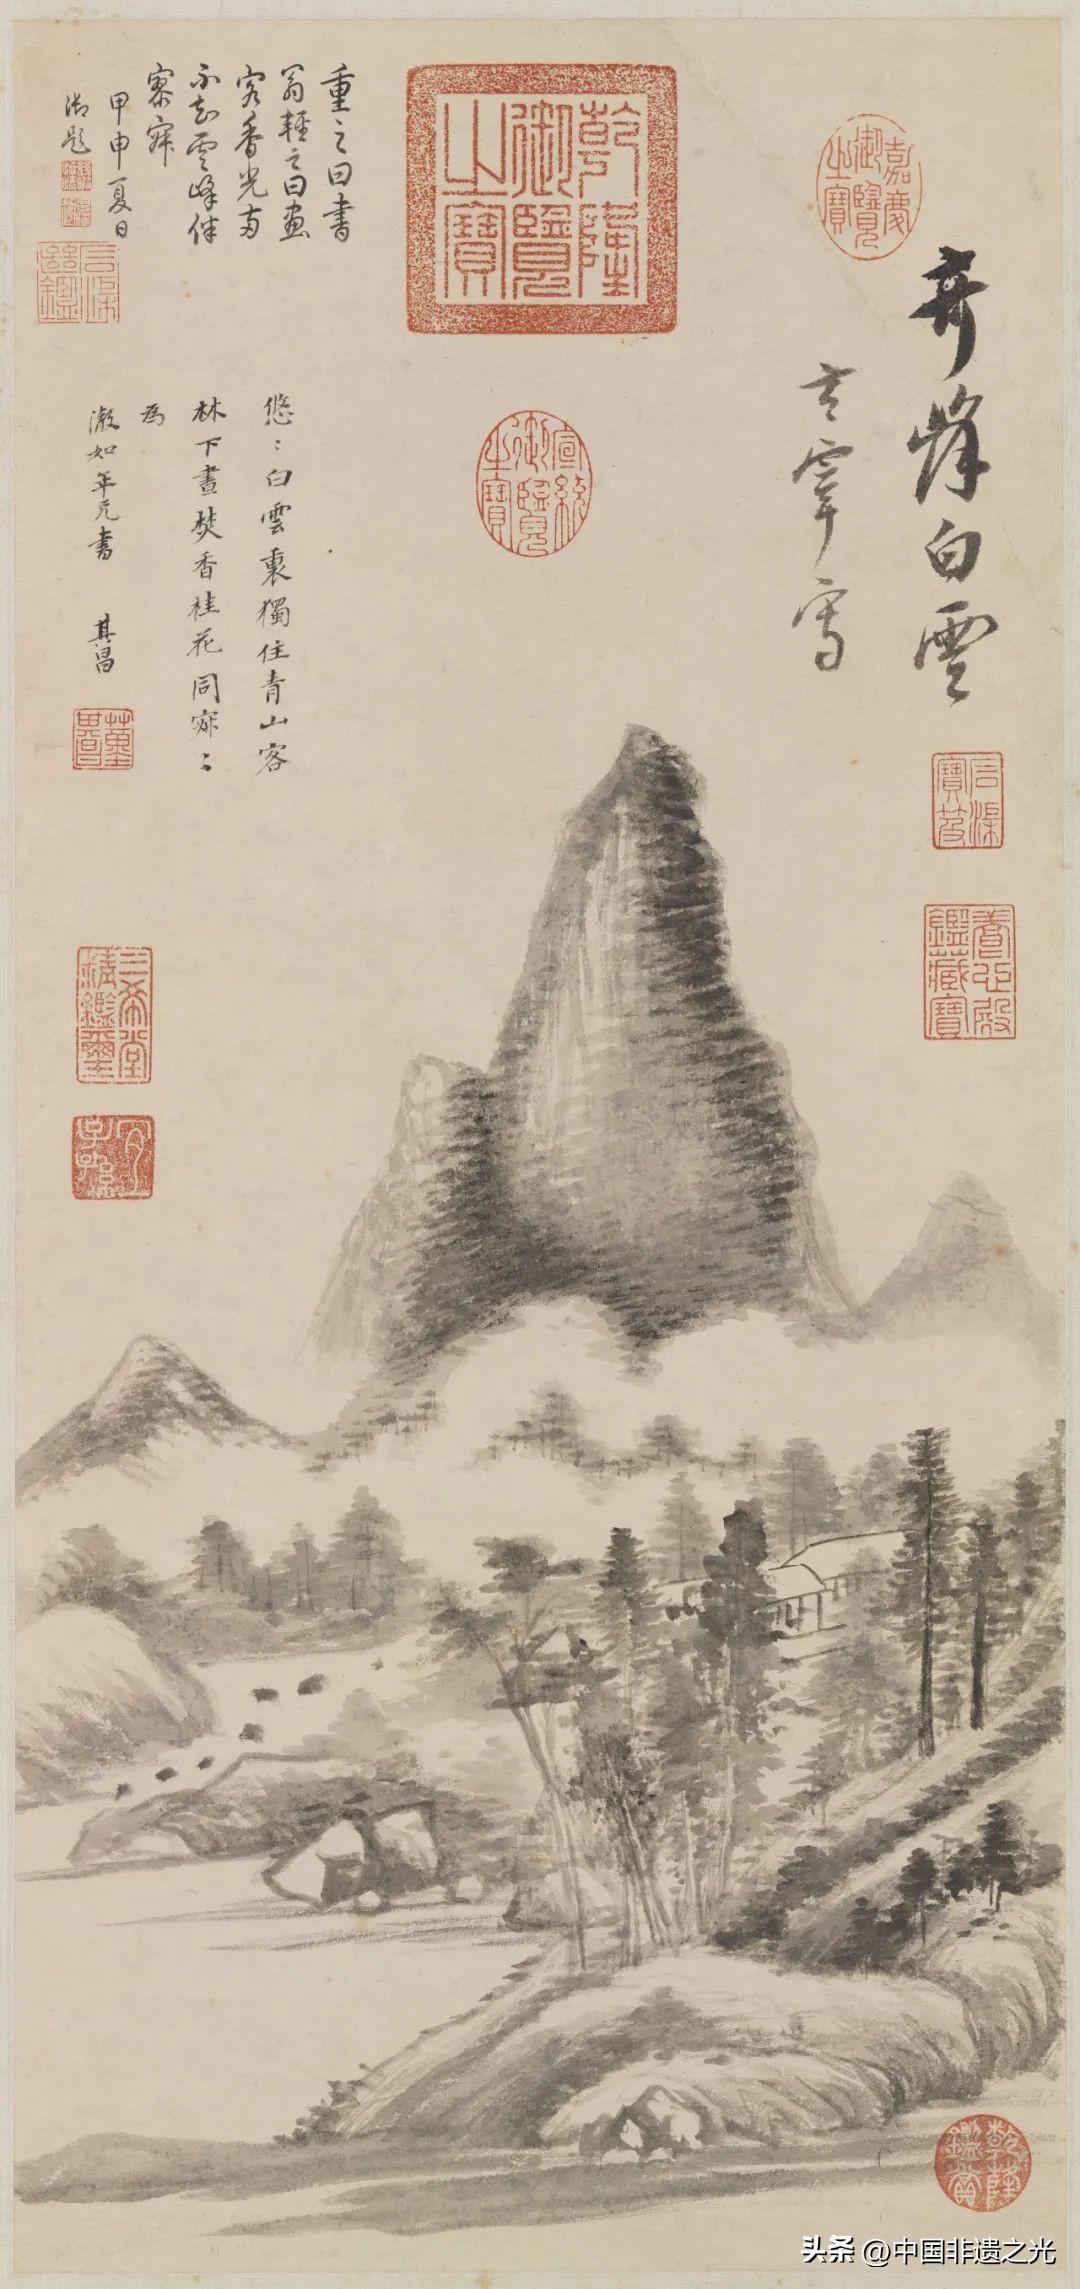 奇峰白雲
玄宰寫
重之曰書
翁輕之曰畫
客香光兩
不知雲峰伴
寥寂
甲申夏日
御題
悠〻白雲裏獨住青山客
林下晝焚香桂花同寂〻
為
澂如年兄書 其昌
嘉慶御覽之寶
乾隆御覽之寶
宣統御覽之寶
石渠繼鑑
石渠寶笈
養心殿鑑藏寶
董其昌
三希堂精鑑璽
宜子孫
乾隆鑑賞
头条 @中国非遗之光